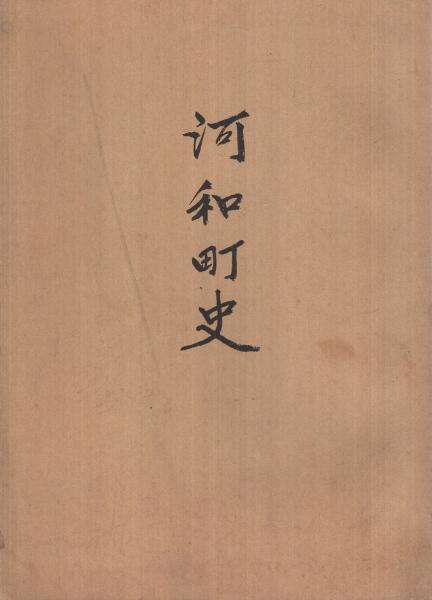 河和町史